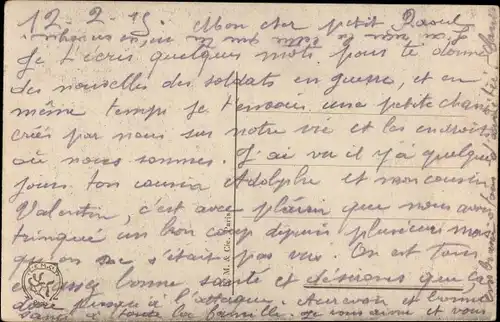 12-2-15. Mon cher petit Raoul
Je t'écris quelques mots pour te donner
des nouvelles des soldats en guerre, et en
même temps je t'envoie une petite chanson
créés par nous sur notre vie et les endroits
où nous sommes. J'ai vu il y a quelque
jours ton cousin Adolphe et mon cousin
Valentin, c'est avec plaisir que nous avons
trinqué un bon coup depuis plusieurs mois
que on ne s'était pas vu. On est tous
en assez bonne santé et désirons que ça
dure jusqu'à l'attaque. Au revoir et bonne
santé à toute la famille. Je vous
M. & Cie, Paris